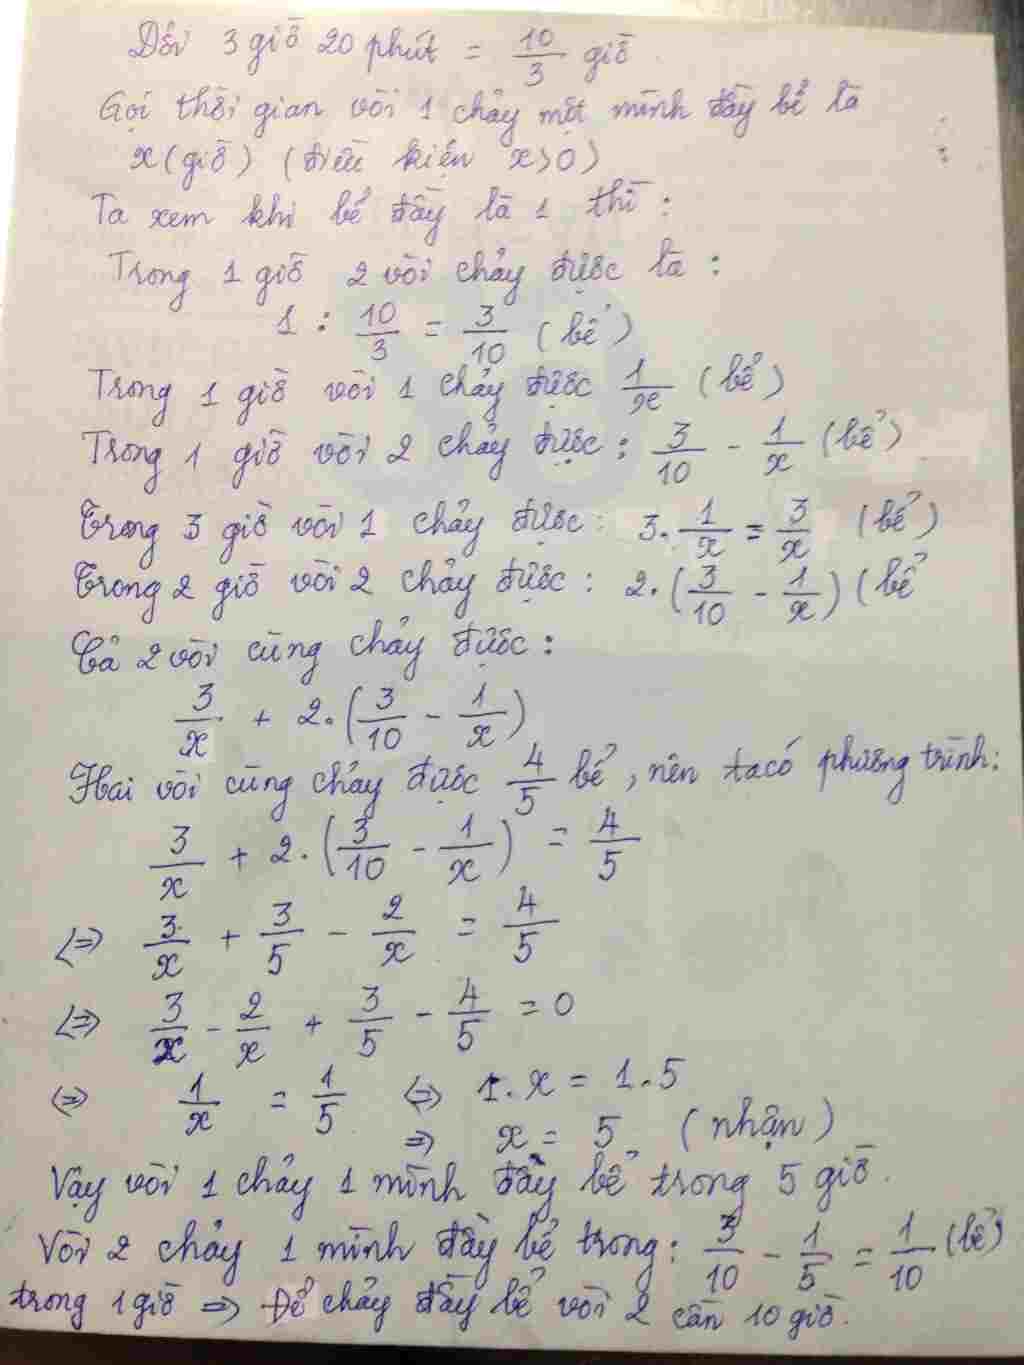 Đổi 3 giờ 20 phút = 10/3 giờ
Gọi thời gian vòi 1 chảy một mình đầy bể là
x (giờ) (điều kiện x>0)
Ta xem khi bể đầy là 1 thì:
Trong 1 giờ 2 vòi chảy được là:
1 : 10/3 = 3/10 (bể)
Trong 1 giờ vòi 1 chảy được 1/x (bể)
Trong 1 giờ vòi 2 chảy được: 3/10 - 1/x (bể)
Trong 3 giờ vòi 1 chảy được: 3.1/x = 3/x (bể)
Trong 2 giờ vòi 2 chảy được: 2.(3/10 - 1/x) (bể
Cả 2 vòi cùng chảy được:
3/x + 2.(3/10 - 1/x)
Hai vòi cùng chảy được 4/5 bể, nên ta có phương trình:
3/x + 2.(3/10 - 1/x) = 4/5
<=> 3/x + 3/5 - 2/x = 4/5
<=> 3/x - 2/x + 3/5 - 4/5 = 0
<=> 1/x = 1/5 <=> 1.x = 1.5
=> x = 5 (nhận)
Vậy vòi 1 chảy 1 mình đầy bể trong 5 giờ.
Vòi 2 chảy 1 mình đầy bể trong: 3/10 - 1/5 = 1/10 (bể)
trong 1 giờ => Để chảy đầy bể vòi 2 cần 10 giờ.